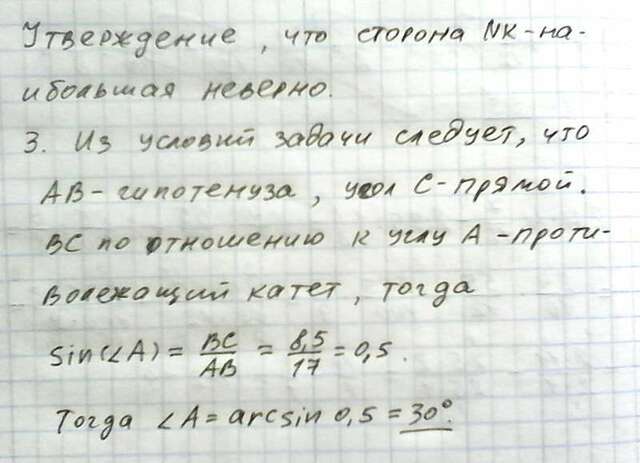 Утверждение, что сторона NK-на-
ибольшая неверно.
3. Из условий задачи следует, что
AB-гипотенуза, угол C-прямой.
BC по отношению к углу A -проти-
волежащий катет, тогда
sin(∠A) = BC/AB = 8,5/17 = 0,5.
Тогда ∠A = arcsin 0,5 = 30°.